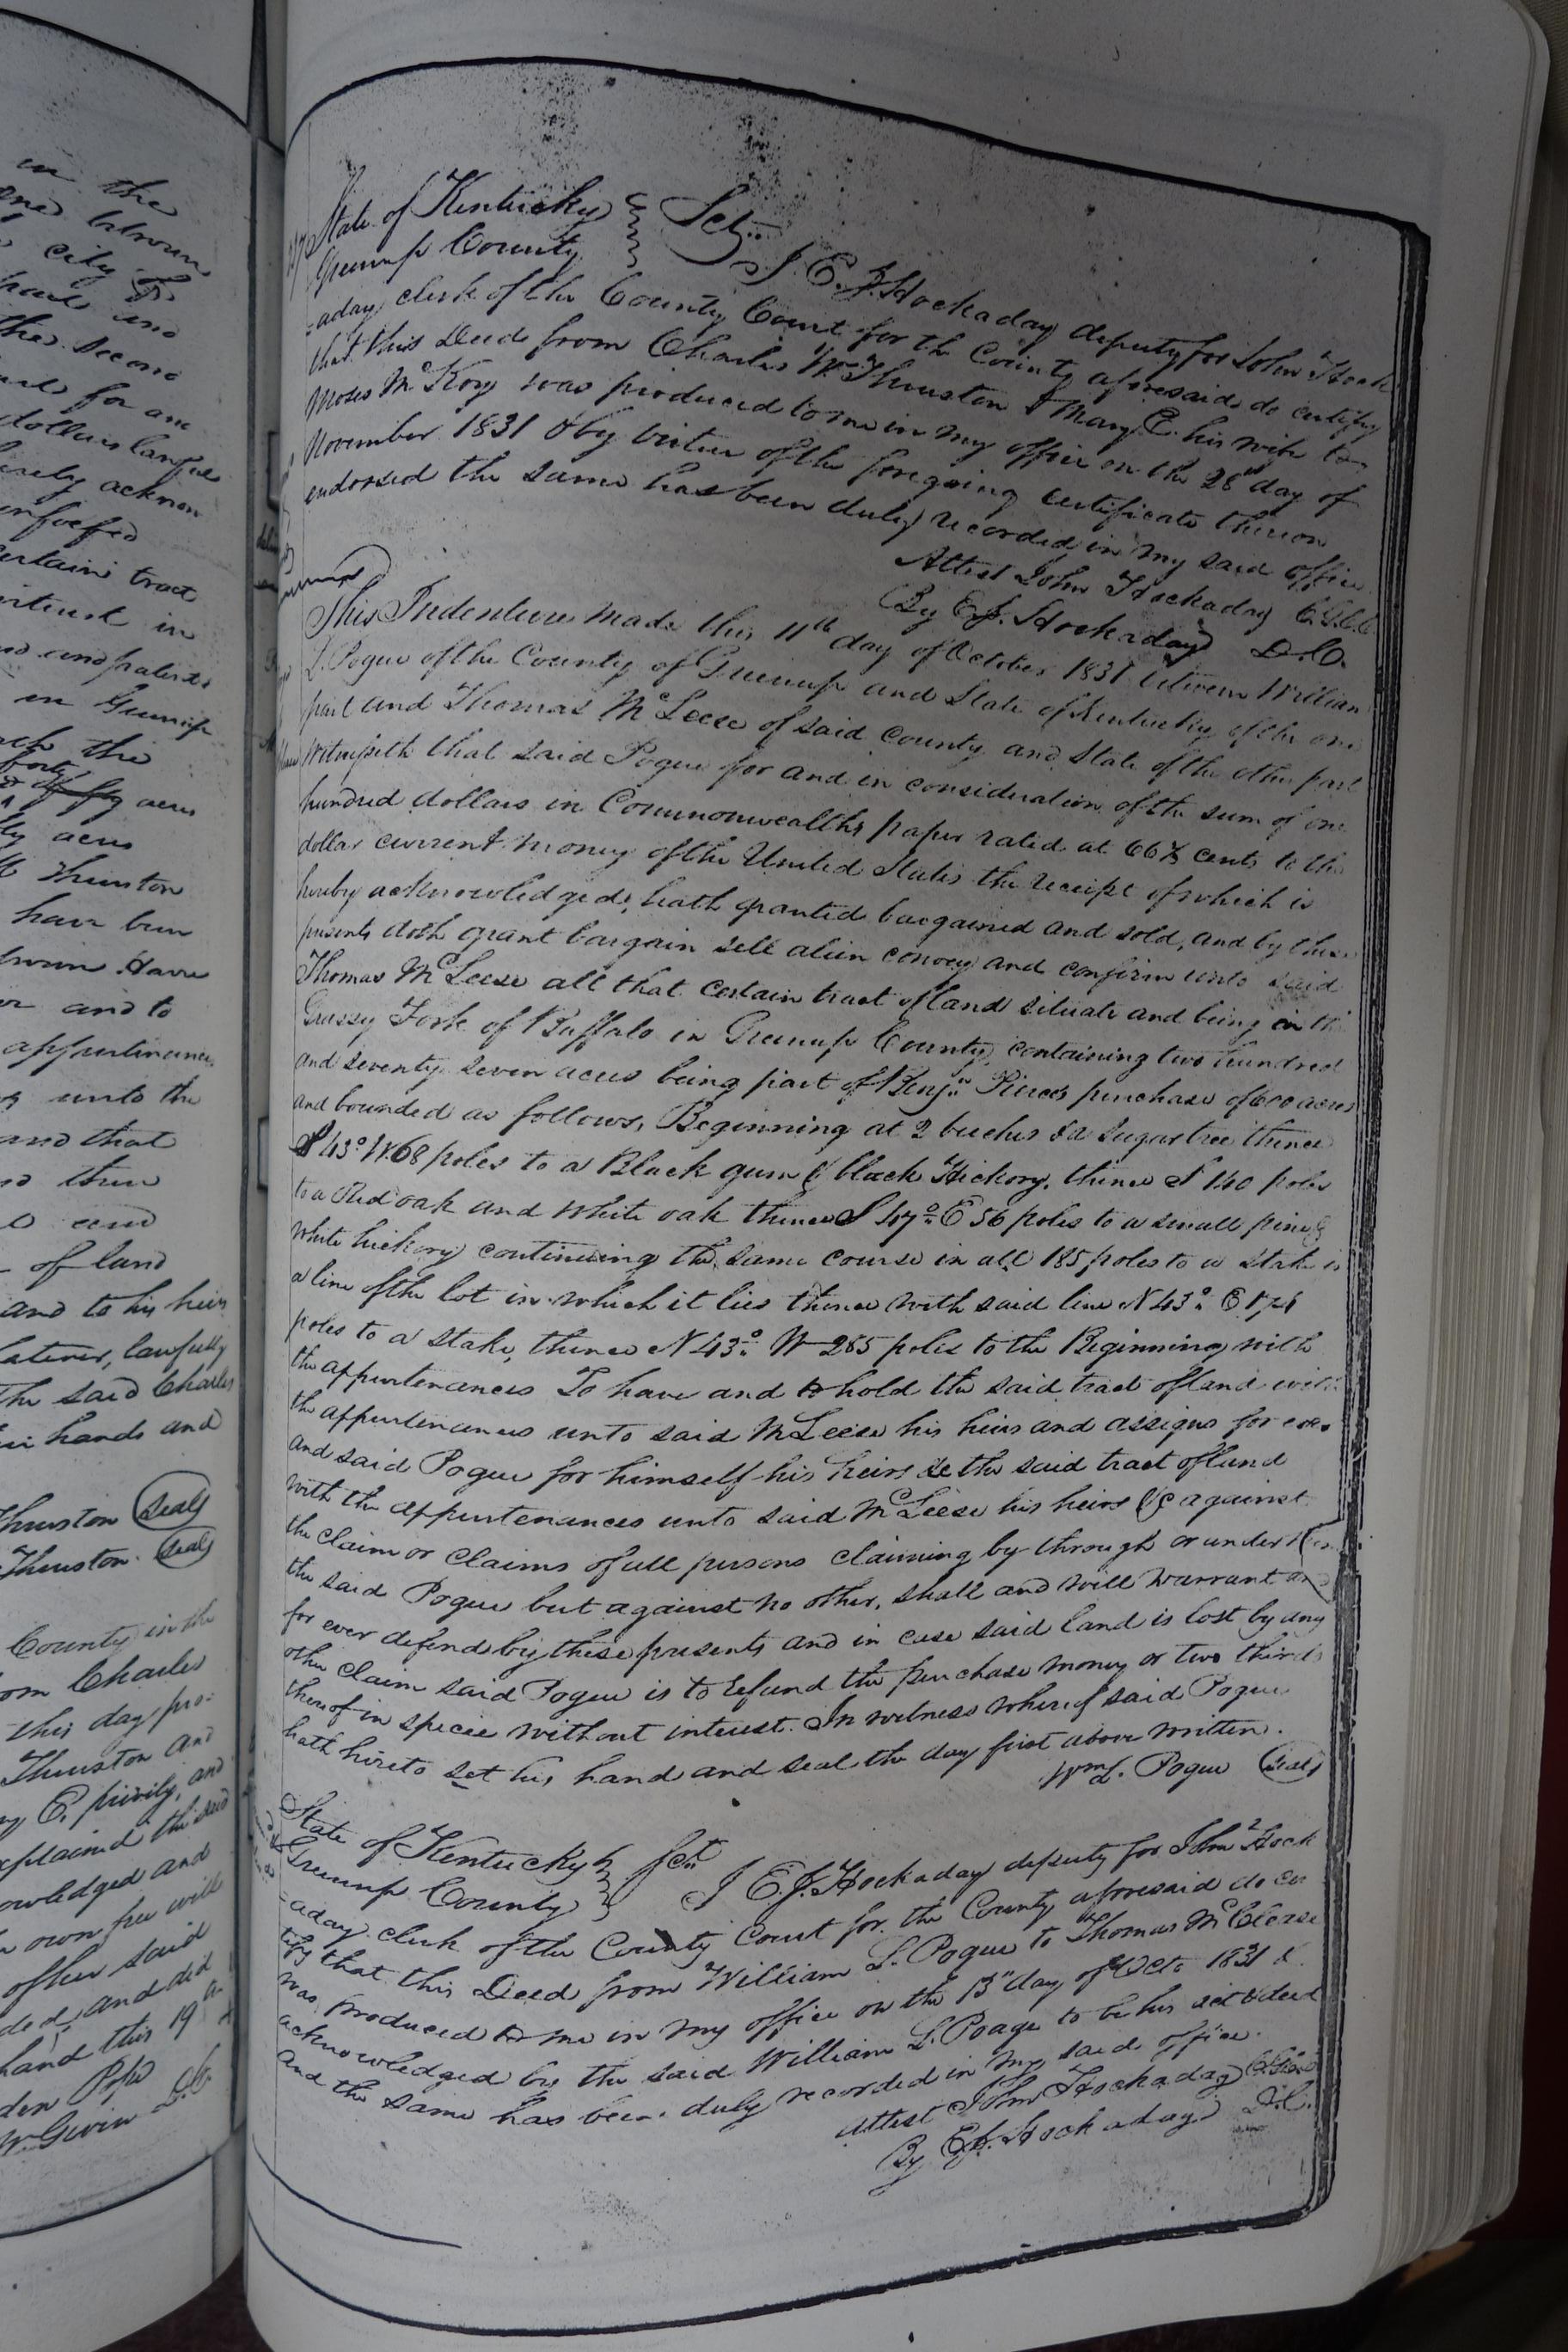 in the
one
city
and
the second
for an
dollars lawful
acknow
enfeoffed
certain tract
interest in
and patented
in Greenup
the
forty
acres
acres
Thruston
have been
have
and to
appurtenances
unto the
and that
then
and
of land
and to his heirs
lawfully
The said Charles
hands and
Thruston (Seal)
Thruston (Seal)
County in the
from Charles
this day pro-
Thruston and
E. privily, and
explained the said
acknowledged and
own free will
of her said
and did
hand this 19
State of Kentucky
Greenup County Sct.
I E. J. Hockaday deputy for John Hock
-aday clerk of the County Court for the County aforesaid do certify
that this Deed from Charles W. Thruston & Mary E. his wife to
Moses McKoy was produced to me in my office on the 28th day of
November 1831 & by virtue of the foregoing certificate thereon
endorsed the same has been duly recorded in my said office
Attest John Hockaday C.G.C.C.
By E.J. Hockaday D.C.
This Indenture made this 11th day of October 1831 between William
L. Pogue of the County of Greenup and State of Kentucky of the one
part and Thomas McLeese of said County and State of the other part
Witnesseth that said Pogue for and in consideration of the sum of one
hundred dollars in Commonwealths paper rated at 66⅔ cents to the
dollar current money of the United States the receipt of which is
hereby acknowledged, hath granted bargained and sold, and by these
presents doth grant bargain sell alien convey and confirm unto said
Thomas McLeese all that certain tract of land situate and being in the
Grassy Fork of Buffalo in Greenup County containing two hundred
and seventy seven acres being part of Benjn. Pierces purchase of 600 acres
and bounded as follows, Beginning at 2 beeches & a Sugartree thence
S 43° W 68 poles to a Black gum & black Hickory, thence S 140 poles
to a Red oak and White oak thence S 47° E 56 poles to a small pine &
white hickory continuing the same course in all 185 poles to a stake in
a line of the lot in which it lies thence with said line N 43° E
poles to a stake, thence N 43° W 285 poles to the Beginning with
the appurtenances To have and to hold the said tract of land with
the appurtenances unto said McLeese his heirs and assigns for ever
and said Pogue for himself his heirs &c the said tract of land
with the appurtenances unto said McLeese his heirs &c against
the claim or claims of all persons claiming by through or under him
the said Pogue but against no other, shall and will warrant and
for ever defend by these presents and in case said land is lost by any
other claim said Pogue is to refund the purchase money or two thirds
thereof in specie without interest. In witness whereof said Pogue
hath hireto set his hand and seal the day first above written.
Wm L. Pogue (Seal)
State of Kentucky
Greenup County Sct
I E. J. Hockaday deputy for John Hock
-aday clerk of the County Court for the County aforesaid do cer
tify that this Deed from William L. Pogue to Thomas McCleese
was produced to me in my office on the 13th day of Octo 1831 &
acknowledged by the said William L. Poage to be his act & deed
and the same has been duly recorded in my said office.
Attest John Hockaday
By E.J. Hockaday D.C.